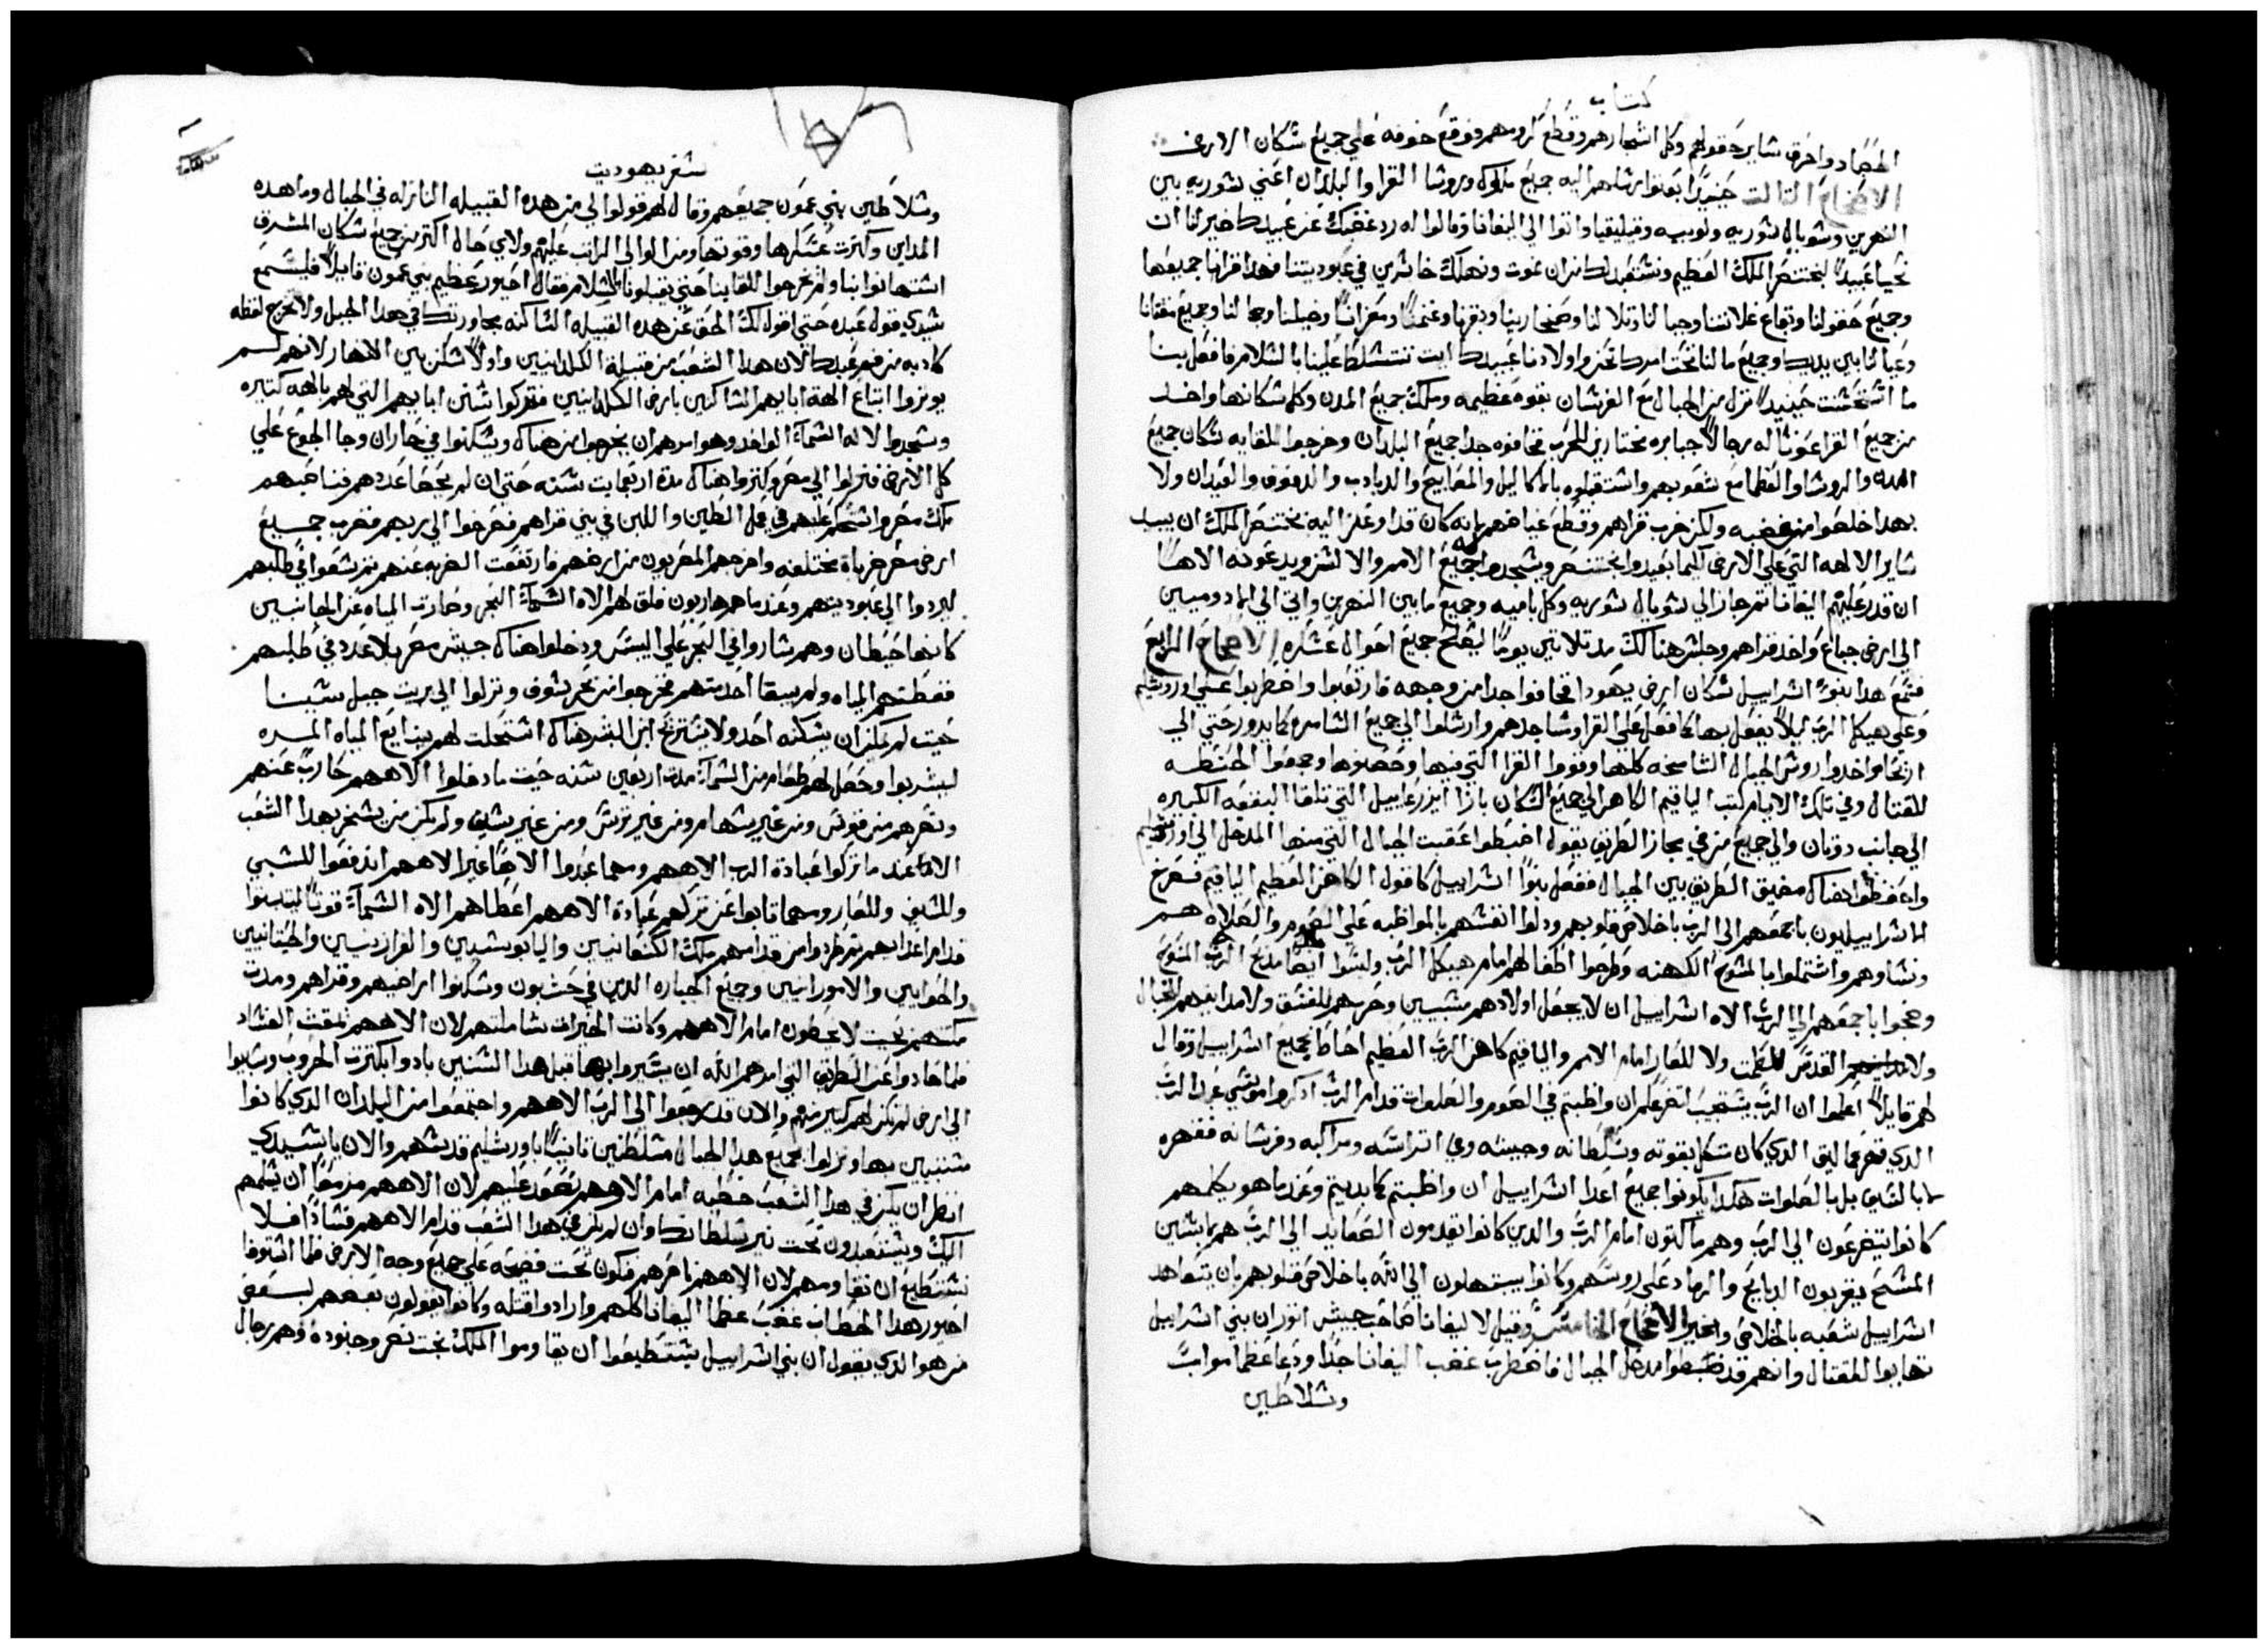 كتاب
الحصاد واحرق ساير حقولهم وكل اشجارهم وقطع كرومهم ووقع خوفه علي جميع سكان الارض
الاصحاح التالت حينيدًا بعتوا برسلهم اليه جميع ملوك وروسا القرا والبلدان اعني سوريه بين
النهرين وسوبال سوريه ولوبيه وقيليقيا واتوا الي اليفانا وقالوا له رد غضبك عن عبيدك خير لنا ان
نحيا عبيدًا لبختنصر الملك العظيم ونستعبد لك من ان نموت ونهلك خاسرين في عبوديتنا فهدا قرانا جميعها
وجميع حقولنا وبقاع غلاتنا وجبالنا وتلالنا وصحارينا وبقرنا وغنمنا ومعزانا وخيلنا وجمالنا وجميع مقتنانا
وعيالنا بين يديك وجميع مالنا تحت امرك نحن واولادنا عبيدك ايت تتسلط علينا بالسلامه فافعل بنا
ما استحسنت حينيدًا نزل من الجبال مع الفرسان بقوه عظيمه وملك جميع المدن وكل سكانها واخد
من جميع القرا عونًا له رجالًا جبابره مختارين للحرب فخافوه جدا جميع البلدان وخرجوا للقايه سكان جميع
المدن والروسا والعظما مع شعوبهم واستقبلوه بالاكاليل والمصابيح والديادب والدفوف والعيدان ولا
بهدا خلصوا من غضبه ولكن خرب قراهم وقطع غياضهم لانه كان قد اوعز اليه بختنصر الملك ان يبيد
ساير الالهه التي علي الارض كيما يعبدوا بختنصر ويسجدوا له جميع الامم والالسن ويدعونه الاهًا
ان قدر عليهم اليفانا تم جاز الي سوبال سوريه وكل باميه وجميع ما بين النهرين واتي الي الادوميين
الي ارض جباع واخد قراهم وجلس هنالك مده تلاتين يومًا ليصلح جميع احوال عسكره الاصحاح الرابع
فسمع هدا بنوا اسراييل سكان ارض يهودا فخافوا جدا من وجهه فارتعبوا واضطربوا علي اورشليم
وعلي هيكل الرب ليلًا يفعل بها كما فعل علي القرا ومساجدهم وارسلوا الي جميع السامره كما يدور حتي الي
اريحا واخدوا روس الجبال الشامخه كلها وقووا القرا التي فيها وحصنوها وجمعوا الحنطه
للقتال وفي تلك الايام كتب الياقيم الكاهن الي جميع السكان بازا ايزرعاييل التي تلقا البقعه الكبيره
الي جانب دوتان والي جميع من في مجاز الطريق يقول اضبطوا عقبت الجبال التي منها المدخل الي اورشليم
واحفظوا هناك مضيق الطريق بين الجبال ففعل بنوا اسراييل كما قول الكاهن العظيم الياقيم فصرخ
الاسراييليون باجمعهم الي الرب باخلاص قلوبهم ودلوا انفسهم بالمواظبه علي الصوم والصلاه هم
ونساوهم واشتملوا بالمسوح الكهنه وطرحوا اطفالهم امام هيكل الرب ولبسوا ايضا مدبح الرب المسوح
وضجوا باجمعهم الي الرب الاه اسراييل ان لا يجعل اولادهم مسبيين وحريمهم للفسق ولا مداينهم للخبال
ولا القدس للطمت ولا للعار امام الامم والياقيم كاهن الرب العظيم احاط بجميع اسراييل وقال
لهم قايلًا اعلموا ان الرب يستجيب لتضرعكم ان واظبتم في الصوم والصلوات قدام الرب ادكروا موسي عبد الرب
الدي قهر عماليق الدي كان متكل بقوته وسلطانه وجيشه وعلي اتراسه ومراكبه وفرسانه فقهره
لا بالسيف بل بالصلوات هكدا يكونوا جميع اعدا اسراييل ان واظبتم كما بديتم وعند ما هو يكلمهم
كانوا يتضرعون الي الرب وهم ماكتون امام الرب والدين كانوا يقدمون الصعايد الي الرب هم لابسين
المسح يقربون الدبايح والرماد علي روسهم وكانوا يبتهلون الي الله باخلاص قلوبهم بان يتعاهد
اسراييل شعبه بالخلاص والخير الاصحاح الخامس وقيل لاليفانا صاحب جيش اتور ان بني اسراييل
تهايوا للقتال وانهم قد ضبطوا مدخل الجبال فاضطرب غضب اليفانا جدًا ودعا عظما مواب
وسلاطين
سفر يهوديت
وسلاطين بني عمون جميعهم وقال لهم قولوا لي من هده القبيله النازله في الجبال وما هده
المداين وكترت عسكرها وقوتها ومن الوالي الراتب عليهم ولاي حال اكتر من جميع سكان المشرق
استهانوا بنا ولم يخرجوا للقاينا حتي يقبلونا بالسلام فقال احيور عظيم بني عمون قايلًا فليسمع
سيدي قول عبده حتي اقول لك الحق عن هده القبيله الساكنه بجاورتك في هدا الجبل ولا تخرج لفظه
كادبه من فم عبدك لان هدا الشعب من قبيلة الكلدانيين واولًا سكن بين الانهار لانهم لم
يوتروا اتباع الهة ابايهم الساكنين بارض الكلدانيين فتركوا سنن ابايهم التي لهم بالهه كتيره
وسجدوا لاله السمآ الواحد وهو امرهم ان يخرجوا من هناك وسكنوا في حاران وجا الجوع علي
كل الارض فنزلوا الي مصر وكتروا هناك مدة اربعمايت سنه حتي ان لم يحصا عددهم فناصبهم
ملك مصر واستحكم عليهم في عمل الطين واللبن في بني قراهم فصرخوا الي ربهم فضرب جميع
ارض مصر ضرباة مختلفه واخرجهم المصريون من ارضهم فارتفعت الضربه عنهم تم سعوا في طلبهم
ليردوا الي عبوديتهم وعند ما هم هاربون فلق لهم الاه السمآ البحر وصارت المياه عن الجانبين
كانها حيطان وهم ساروا في البحر علي اليبس ودخلوا هناك جيش مصر بلا عدد في طلبهم
فغطتهم المياه ولم يبقا احد منهم فخرجوا من بحر سوف ونزلوا الي بريت جبل سينا
حيت لم يمكن ان يسكنه احد ولا يستريح ابن البشر هناك استحلت لهم ينابيع المياه المره
ليشربوا وحصل لهم طعام من السمآ مدة اربعين سنه حيت ما دخلوا الاههم حارب عنهم
ونصرهم من غير قوس ومن غير سهام ومن غير ترس ومن غير سيف ولم يكن من يسخر بهدا الشعب
الا عند ما تركوا عبادة الرب الاههم ومهما عبدوا الاهًا غير الاههم اندفعوا للسبي
والسيف وللعار ومهما تابوا عن تركهم عبادة الاههم اعطاهم الاه السمآ قوتًا ليتبتوا
قدام اعدايهم تم طردوا من قدامهم ملك الكنعانيين واليابوسيين والفرازيين والحيتانيين
والحوايين والامورانيين وجميع الجبابره الدين في حشبون وسكنوا اراضيهم وقراهم ومدت
مكتهم بحيت لا يخطون امام الاههم وكانت الخيرات شاملتهم لان الاههم يمقت الفساد
فلما حادوا عن الطريق التي امرهم الله ان يسيروا بها قبل هدا السنين بادوا بكترت الحروب وسبيوا
الي ارض لم تكن لهم كتير منهم والان قد رجعوا الي الرب الاههم واجتمعوا من البلدان الدي كانوا
مشتتيين بها ونزلوا بجميع هدا الجبال متسلطين تانيًا باورشليم قدسهم والان يا سيدي
انظر ان يكن في هدا الشعب خطيه امام الاههم نصعد عليهم لان الاههم مزمعًا ان يسلمهم
اليك ويستعبدون تحت نير سلطانك وان لم يكن في هدا الشعب قدام الاههم فسادًا فلا
نستطيع ان نقاومهم لان الاههم ناصرهم فنكون تحت فضيحه علي جميع وجه الارض فلما استوفا
احيور هدا الخطاب غضب عظما اليفانا كلهم وارادوا قتله وكانوا يقولون بعضهم لبعض
من هو الدي يقول ان بني اسراييل يستطيعوا ان يقاوموا الملك بخت نصر وجنوده وهم رجال